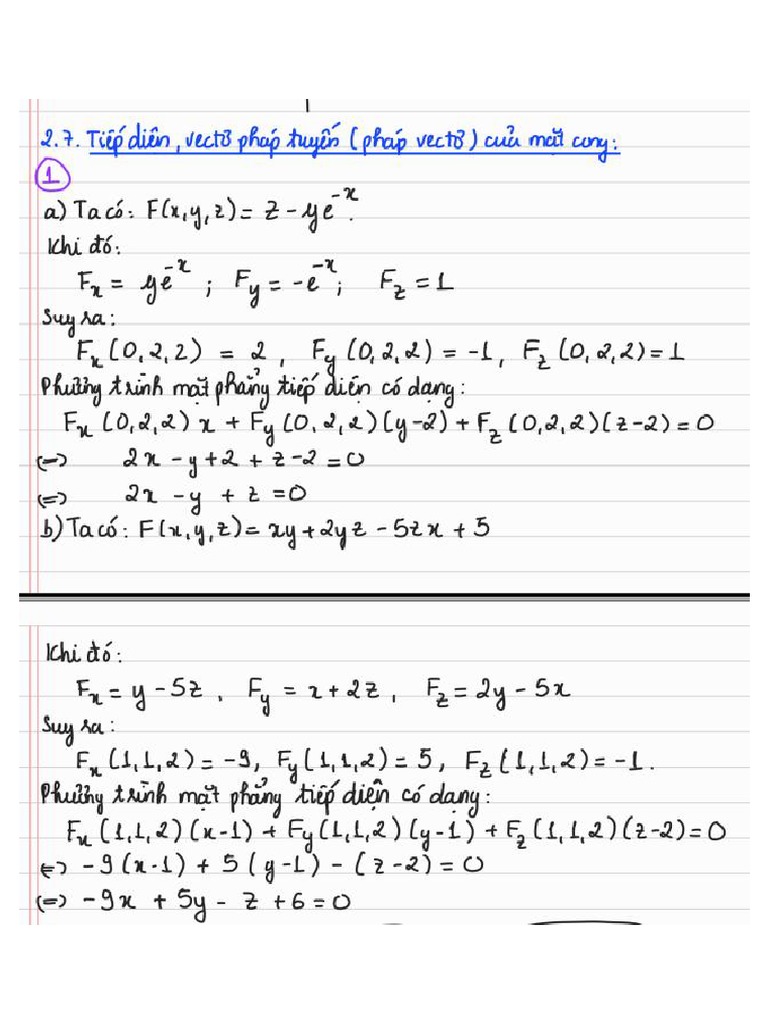 2.7. Tiếp diện, vectơ pháp tuyến (pháp vectơ) của mặt cong:
1
a) Ta có: F(x,y,z) = z - ye^{-x}.
Khi đó:
F_x = ye^{-x} ; F_y = -e^{-x} ; F_z = 1
Suy ra:
F_x (0,2,2) = 2 , F_y (0,2,2) = -1 , F_z (0,2,2) = 1
Phương trình mặt phẳng tiếp diện có dạng:
F_x (0,2,2) x + F_y (0,2,2)(y-2) + F_z (0,2,2)(z-2) = 0
(=) 2x - y + 2 + z - 2 = 0
(=) 2x - y + z = 0
b) Ta có: F(x,y,z) = xy + 2yz - 5zx + 5
Khi đó:
F_x = y - 5z , F_y = x + 2z , F_z = 2y - 5x
Suy ra:
F_x (1,1,2) = -9, F_y (1,1,2) = 5 , F_z (1,1,2) = -1.
Phương trình mặt phẳng tiếp diện có dạng:
F_x (1,1,2)(x-1) + F_y (1,1,2)(y-1) + F_z (1,1,2)(z-2) = 0
(=) -9(x-1) + 5(y-1) - (z-2) = 0
(=) -9x + 5y - z + 6 = 0